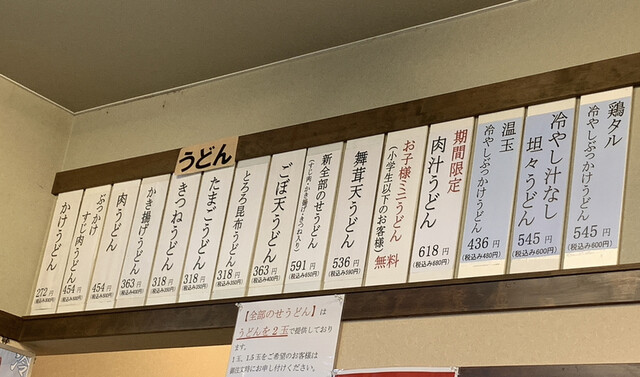 うどん
かけうどん
272円
(税込み300円)
ぶっかけ
すじ肉うどん
454円
(税込み500円)
肉うどん
454円
(税込み500円)
かき揚げうどん
363円
(税込み400円)
きつねうどん
318円
(税込み350円)
たまごうどん
318円
(税込み350円)
とろろ昆布うどん
318円
(税込み350円)
ごぼ天うどん
363円
(税込み400円)
新全部のせうどん
(すじ肉・かき揚げ・きつね入り)
591円
(税込み650円)
舞茸天うどん
536円
(税込み590円)
お子様ミニうどん
(小学生以下のお客様)
無料
期間限定
肉汁うどん
618円
(税込み680円)
温玉
冷やしぶっかけうどん
436円
(税込み480円)
冷やし汁なし
坦々うどん
545円
(税込み600円)
鶏タル
冷やしぶっかけうどん
545円
(税込み600円)
【全部のせうどん】は
うどんを2玉で提供しており
ます。
1玉、1.5玉をご希望のお客様は
御注文時にお申し付けください。
冷